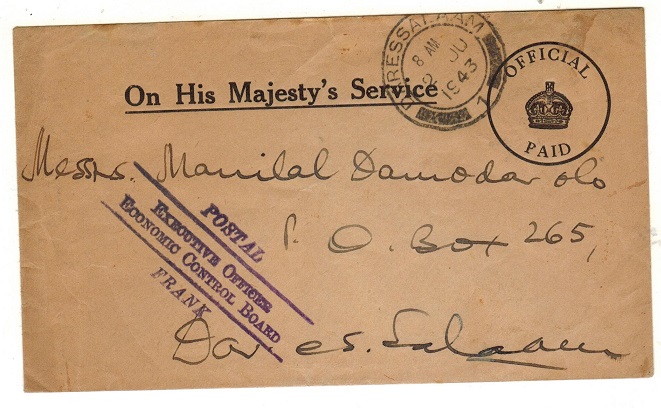 DARESSALAAM
8 AM
2 JU
1943
1
OFFICIAL
PAID
On His Majesty's Service
Messrs. Manilal Damodar
P. O. Box 265,
Dar es. Salaam
POSTAL
EXECUTIVE OFFICER
ECONOMIC CONTROL BOARD
FRANK